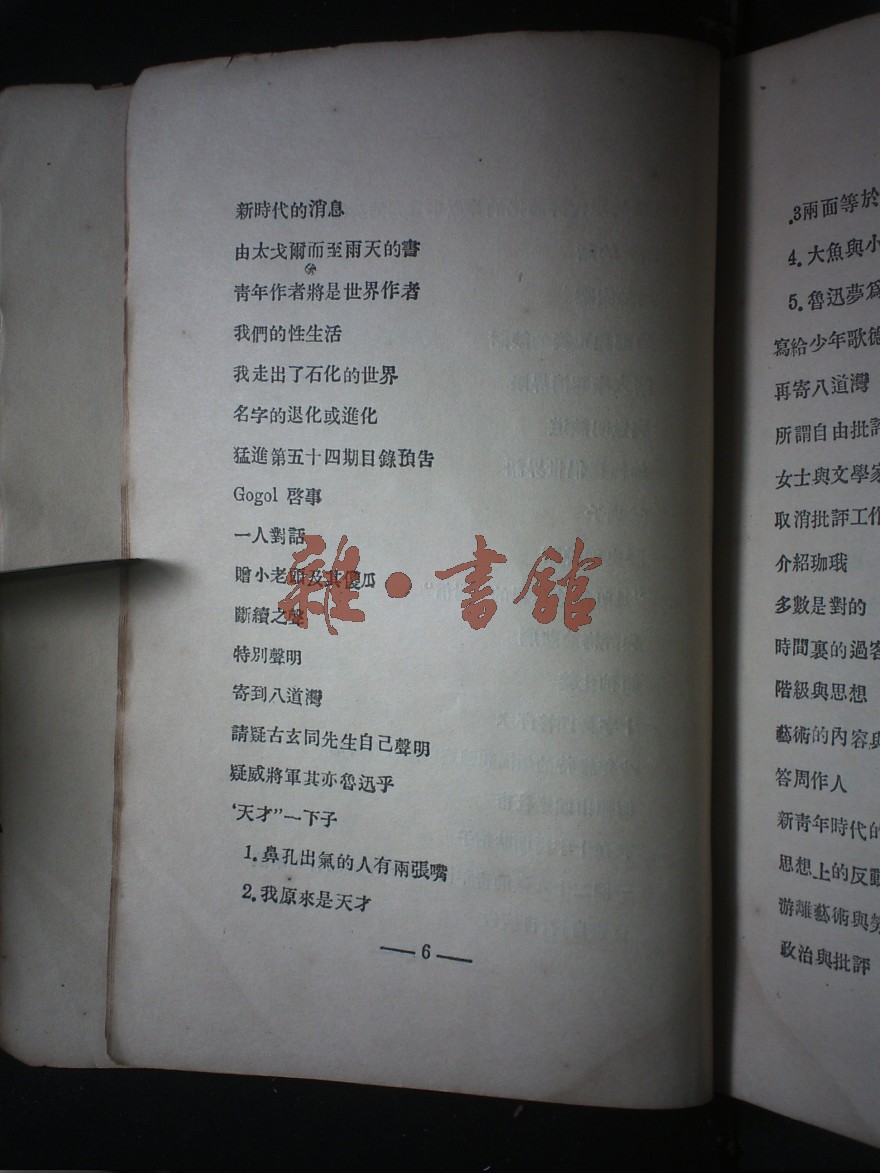 新時代的消息
由太戈爾而至雨天的書
靑年作者將是世界作者
我們的性生活
我走出了石化的世界
名字的退化或進化
猛進第五十四期目錄預告
Gogol 啓事
一人對話
贈小老頭及其傻瓜
斷續之聲
特別聲明
寄到八道灣
請疑古玄同先生自己聲明
疑威將軍其亦魯迅乎
‘天才”一下子
1.鼻孔出氣的人有兩張嘴
2.我原來是天才
—6—
雜·書館
.3兩面等於
4.大魚與小
5.魯迅夢爲
寫給少年歌德
再寄八道灣
所謂自由批評
女士與文學家
取消批評工作
介紹珈玻
多數是對的
時間裏的過客
階級與思想
藝術的內容與
答周作人
新靑年時代的
思想上的反動
游離藝術與勞
政治與批評